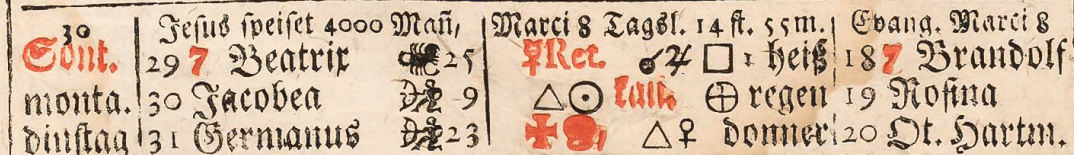 30 Jesus speiset 4000 Mañ, Marci 8 Tagsl. 14 st. 55 m. Evang. Marci 8
Sont. 29 7 Beatrix 25 Ret. ☌ ♃ □ 1 heiß 18 7 Brandolf
monta. 30 Jacobea 9 △ ☉ regen 19 Rosina
dinstag 31 Germanus 23 △ ♀ donner 20 Ot. Hartm.